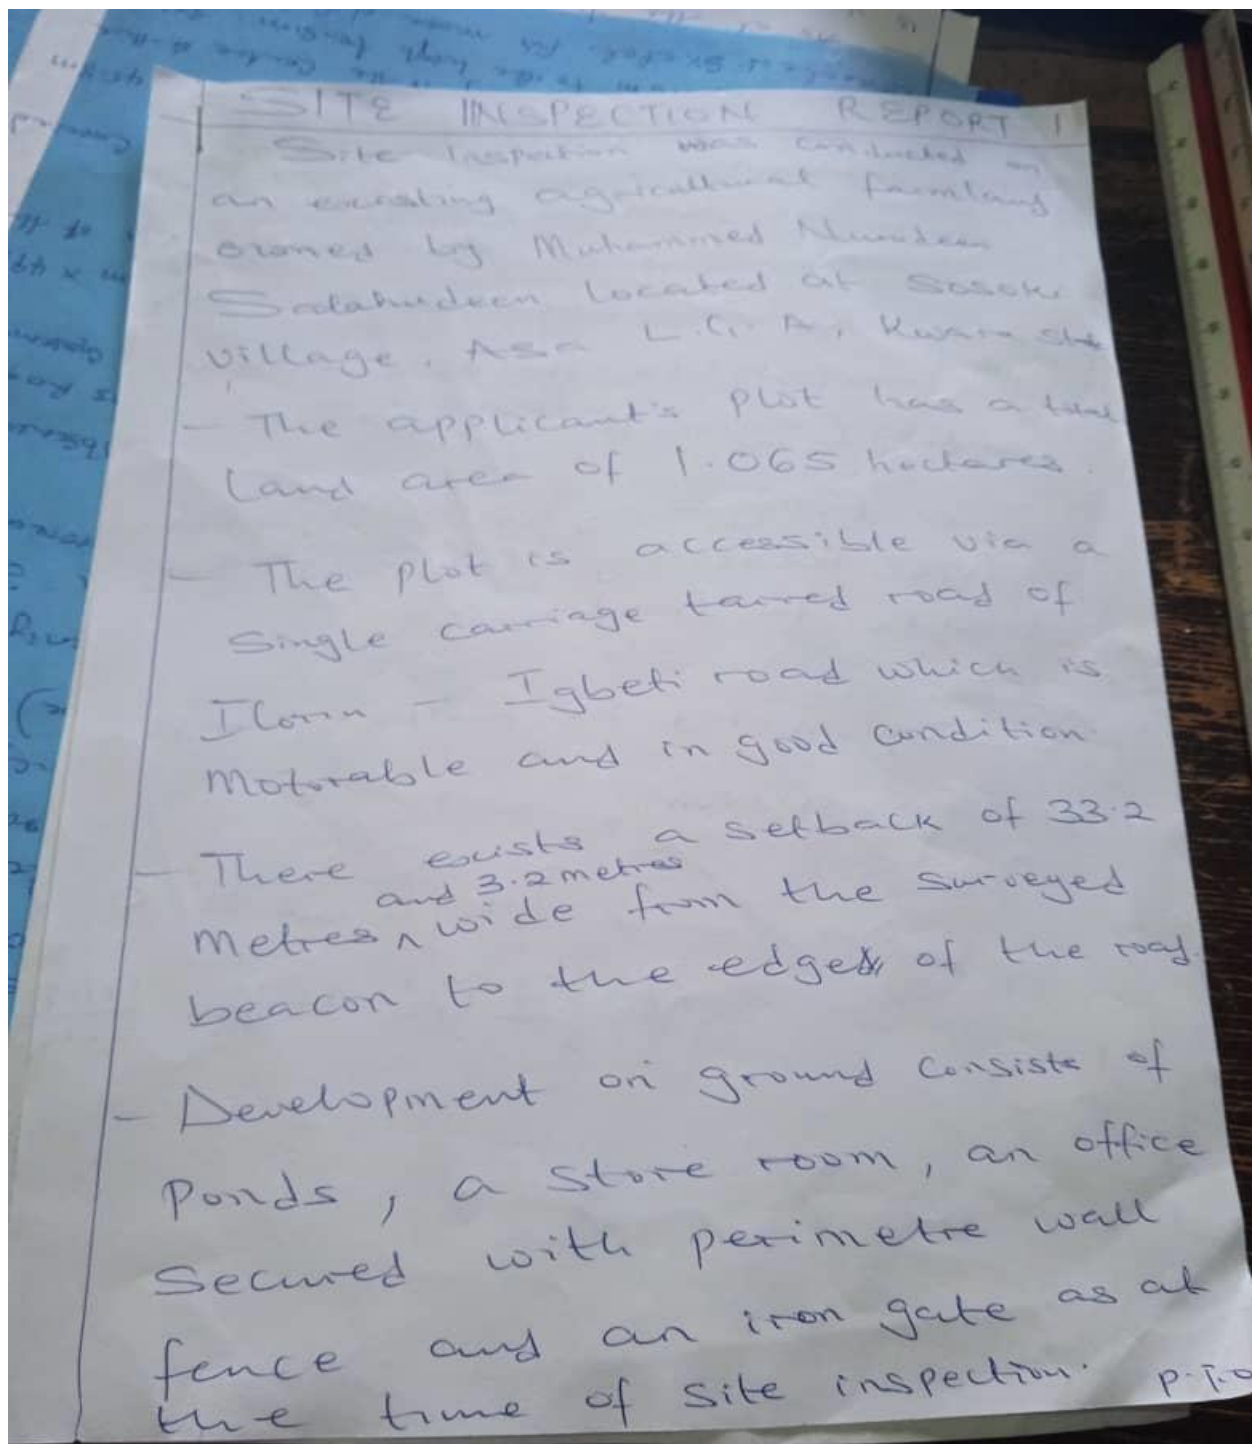 SITE INSPECTION REPORT 1
Site Inspection was conducted on
an existing agricultural farmland
owned by Muhammed Nurudeen
Salahudeen located at Sosoki
village, Asa L.G.A, Kwara State
- The applicant's plot has a total
Land area of 1.065 hectares.
- The plot is accessible via a
Single carriage tarred road of
Ilorin - Igbeti road which is
Motorable and in good condition.
- There exists a setback of 33.2
and 3.2 metres
Metres ^ wide from the surveyed
beacon to the edges of the road.
- Development on ground consists of
Ponds, a store room, an office
Secured with perimetre wall
fence and an iron gate as at
the time of site inspection. P.T.O